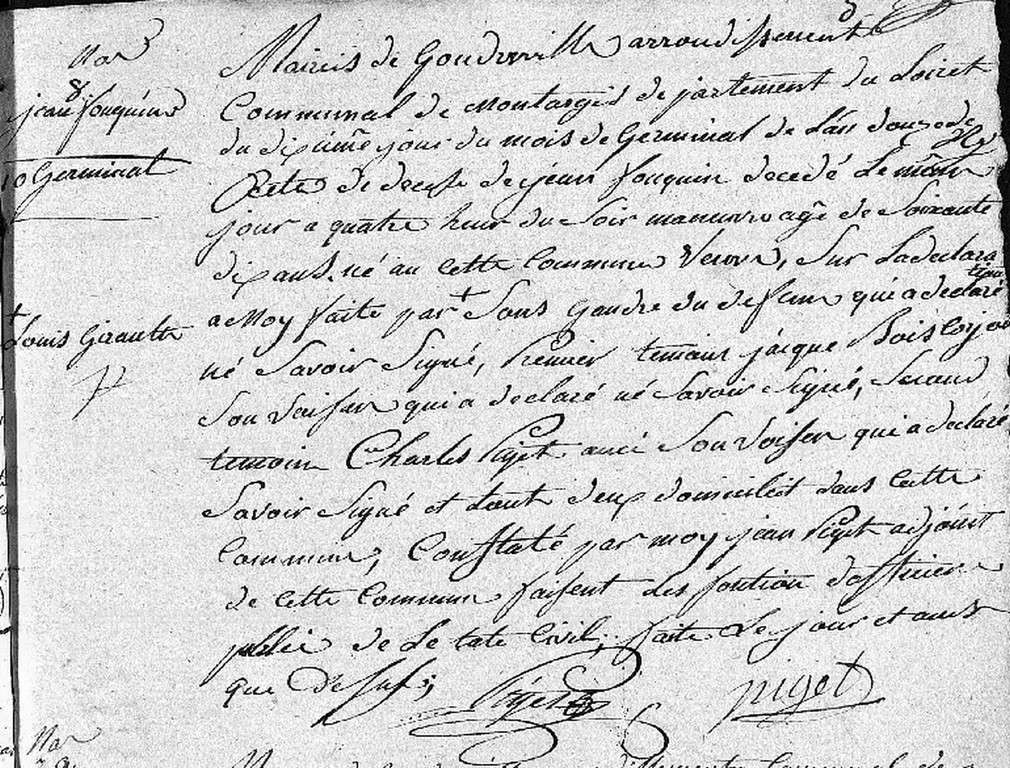 No
8
jean fouquin
10 Germinal
+
Louis Girault
Mairis de Gondreville arrondissement
Communal de Montargis de partement du Loiret
du dixiême jour du mois de Germinal de L'an douze de
Acte de decese de jean fouquin decedé Le même
jour a quatre heur du Soir maneuvre agé de Soixante
dix ans, né au Cette Commune Veuve, Sur La declara
tion
a Moy faite par + Sons gendre du defun qui a declaré
né Savoir Signé, Premier temoin jacque Boislorjou
Son Voisen qui a declaré né Savoir Signé, Second
temoin Charles Piget aucé Son Voisen qui a déclaré
Savoir Signé et tout deux domicileit dans Cette
Commune, Constaté par moy jean Piget adjóint
de cette Commun faisent des fontion d'officier
public de Le tate Civil, faite Le jour et ans
que Desus;
Piget
piget
No